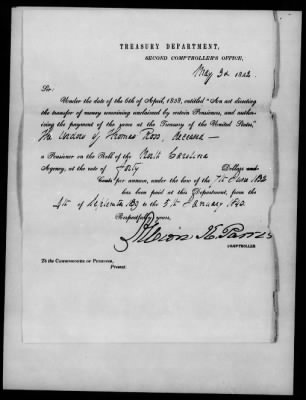 TREASURY DEPARTMENT,
SECOND COMPTROLLER'S OFFICE,
May 3d 1842
Sir:
Under the date of the 6th of April, 1838, entitled "An act directing
the transfer of money remaining unclaimed by certain Pensioners, and autho-
rizing the payment of the same at the Treasury of the United States,"
The of Thomas Ross, deceased
a Pensioner on the Roll of the North Carolina
Agency, at the rate of Forty Dollars and
Cents per annum, under the law of the 7th June 1832
has been paid at this Department, from the
4th of September 1839 to the 5th January 1840.
Respectfully yours,
Albion K. Parris
COMPTROLLER
To the COMMISSIONER OF PENSIONS,
Present.